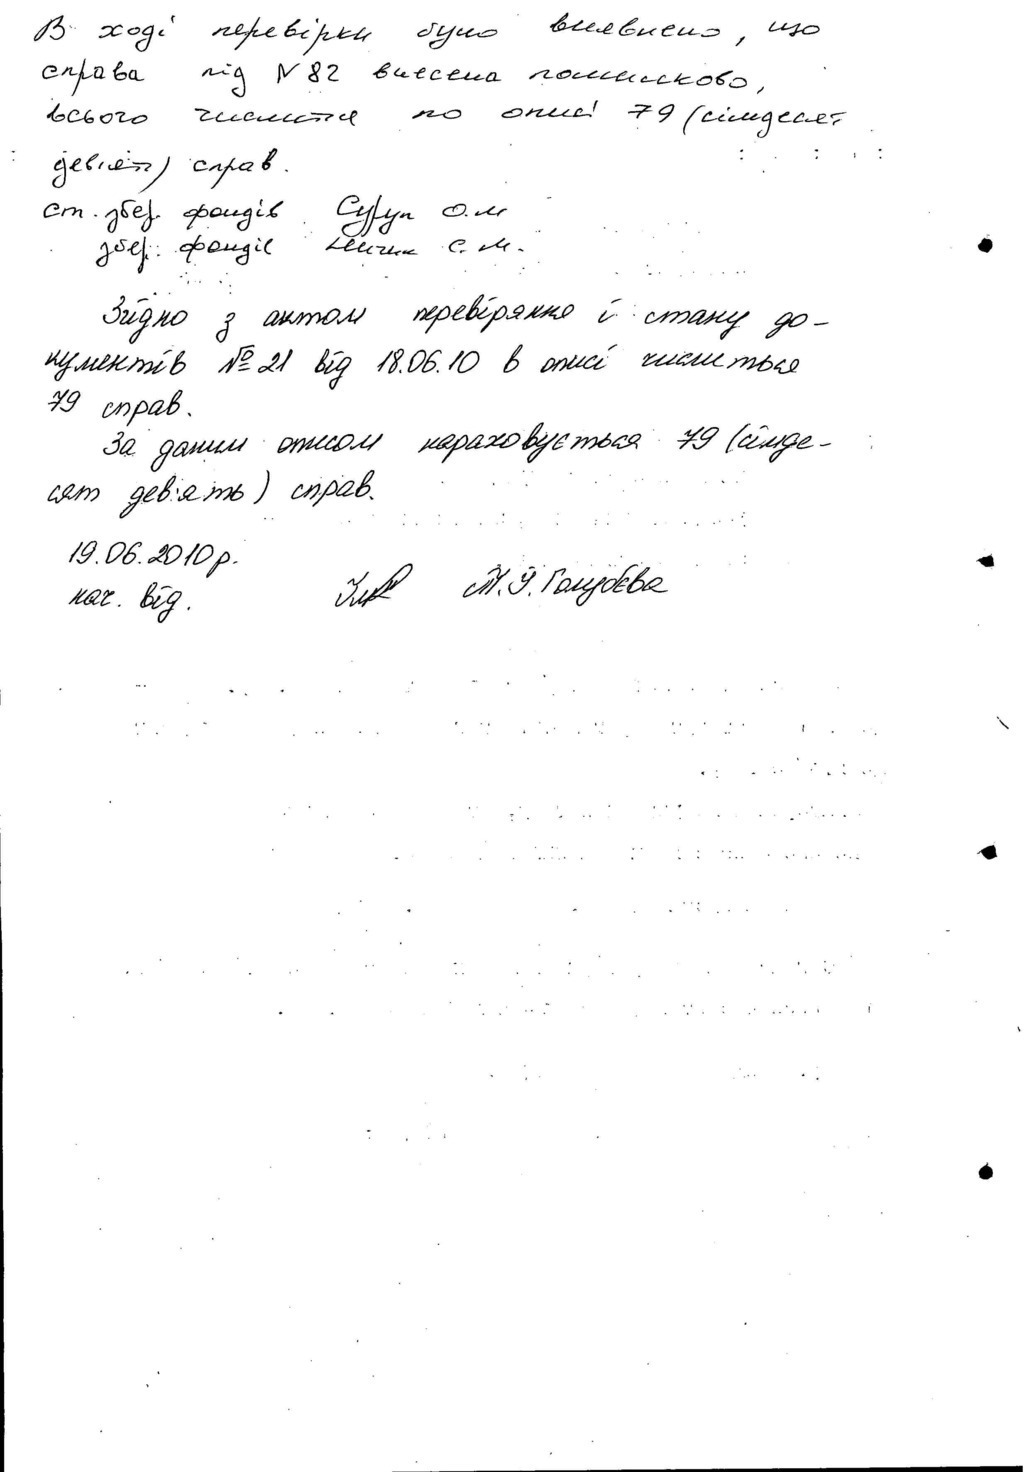 В ході перевірки було виявлено, що
справа під N 82 внесена помилково,
всього числится по описі 79 (сімдесят
девять) справ.
ст. збер. фондів О.М
збер. фондів С.М.
Згідно з актом перевіряння і стану до-
кументів № 21 від 18.06.10 в описі числиться
79 справ.
За даним описом нараховується 79 (сімде-
сят дев'ять) справ.
19.06.2010р.
нач. від. Голубєва